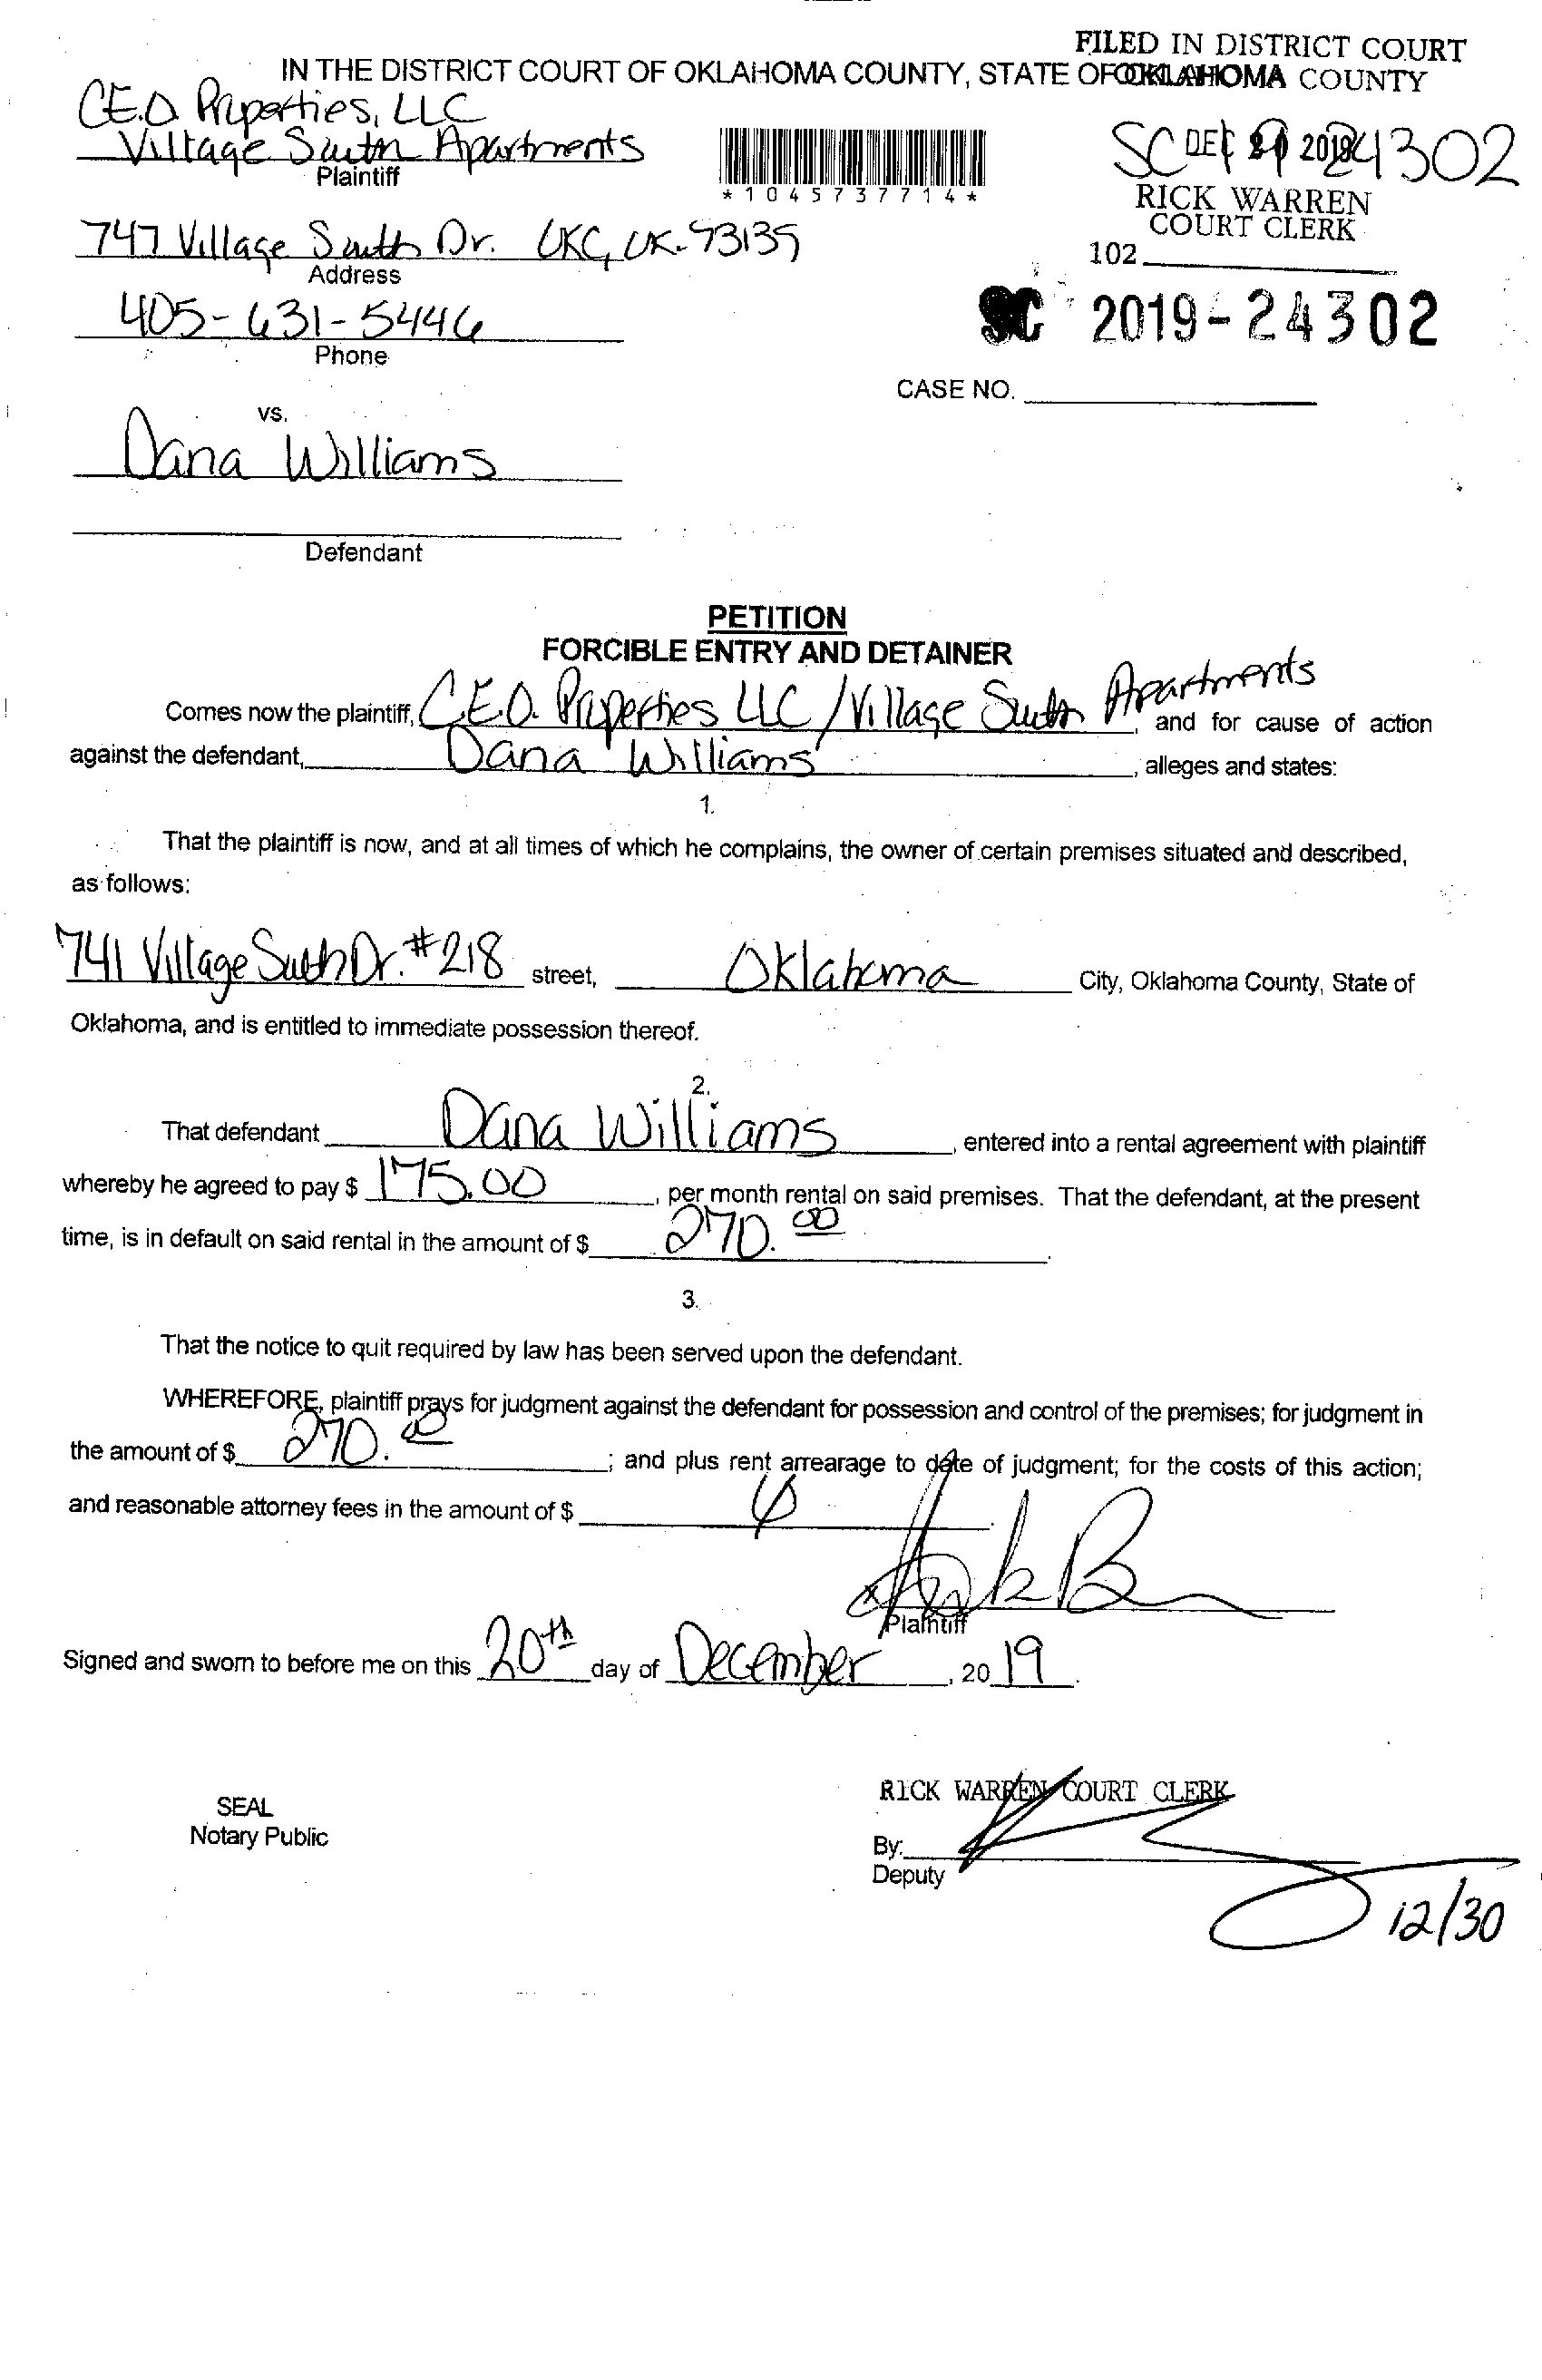 FILED IN DISTRICT COURT
OKLAHOMA COUNTY
IN THE DISTRICT COURT OF OKLAHOMA COUNTY, STATE OF OKLAHOMA
C.E.O. Properties, LLC
Village South Apartments
Plaintiff
*1045737714*
SC 24302
DEC 2019
RICK WARREN
COURT CLERK
102
747 Village South Dr. OKC, OK. 73139
Address
405-631-5446
Phone
SC 2019-24302
CASE NO.
vs.
Dana Williams
Defendant
PETITION
FORCIBLE ENTRY AND DETAINER
Comes now the plaintiff, C.E.O. Properties LLC / Village South Apartments, and for cause of action
against the defendant, Dana Williams, alleges and states:
1.
That the plaintiff is now, and at all times of which he complains, the owner of certain premises situated and described,
as follows:
741 Village South Dr. #218 street, Oklahoma City, Oklahoma County, State of
Oklahoma, and is entitled to immediate possession thereof.
2.
That defendant Dana Williams, entered into a rental agreement with plaintiff
whereby he agreed to pay $ 175.00, per month rental on said premises. That the defendant, at the present
time, is in default on said rental in the amount of $ 270.00.
3.
That the notice to quit required by law has been served upon the defendant.
WHEREFORE, plaintiff prays for judgment against the defendant for possession and control of the premises; for judgment in
the amount of $ 270.00; and plus rent arrearage to date of judgment; for the costs of this action;
and reasonable attorney fees in the amount of $
Plaintiff
Signed and sworn to before me on this 20th day of December, 2019.
RICK WARREN COURT CLERK
SEAL
Notary Public
By:
Deputy
12/30